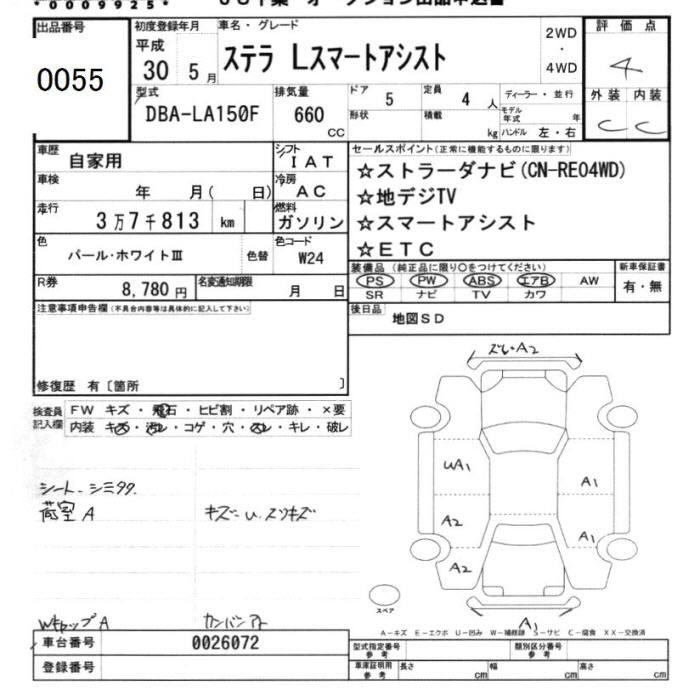 *0009925*
出品番号 初度登録年月 車名・グレード 2WD ・ 4WD 評価点
0055 平成 30 5月 ステラ Lスマートアシスト 4
型式 排気量 ドア 定員 ディーラー・並行 外装 内装
DBA-LA150F 660 CC 5 4 人 モデル年式 年 C C
形状 積載 kg ハンドル 左・右
車歴 自家用 シフト IAT セールスポイント(正常に機能するものに限ります)
車検 年 月( 日) 冷房 AC ☆ストラーダナビ(CN-RE04WD)
☆地デジTV
走行 3万7千813 km 燃料 ガソリン ☆スマートアシスト
☆ETC
色 パール・ホワイトⅢ 色替 色コード W24
装備品(純正品に限り○をつけてください) 新車保証書
PS PW ABS エアB AW 有・無
SR ナビ TV カワ
R券 8,780円 名変通知期限 月 日
注意事項申告欄(不具合内容等は具体的に記入して下さい) 後日品 地図SD
修復歴 有〔箇所 〕
検査員記入欄 FW キズ・飛石・ヒビ割・リペア跡・×要
内装 キズ・汚レ・コゲ・穴・スレ・キレ・破レ
ズレ・A2
UA1 A1
A2 A1
A2
A1
シート シミ
荷室 A キズ U. スリキズ
スペア
WキャップA カンバンアト
A-キズ E-エクボ U-凹み W-補修跡 S-サビ C-腐食 XX-交換済
車台番号 0026072 型式指定番号 参考 類別区分番号 参考
登録番号 車庫証明用 参考 長さ cm 幅 cm 高さ cm